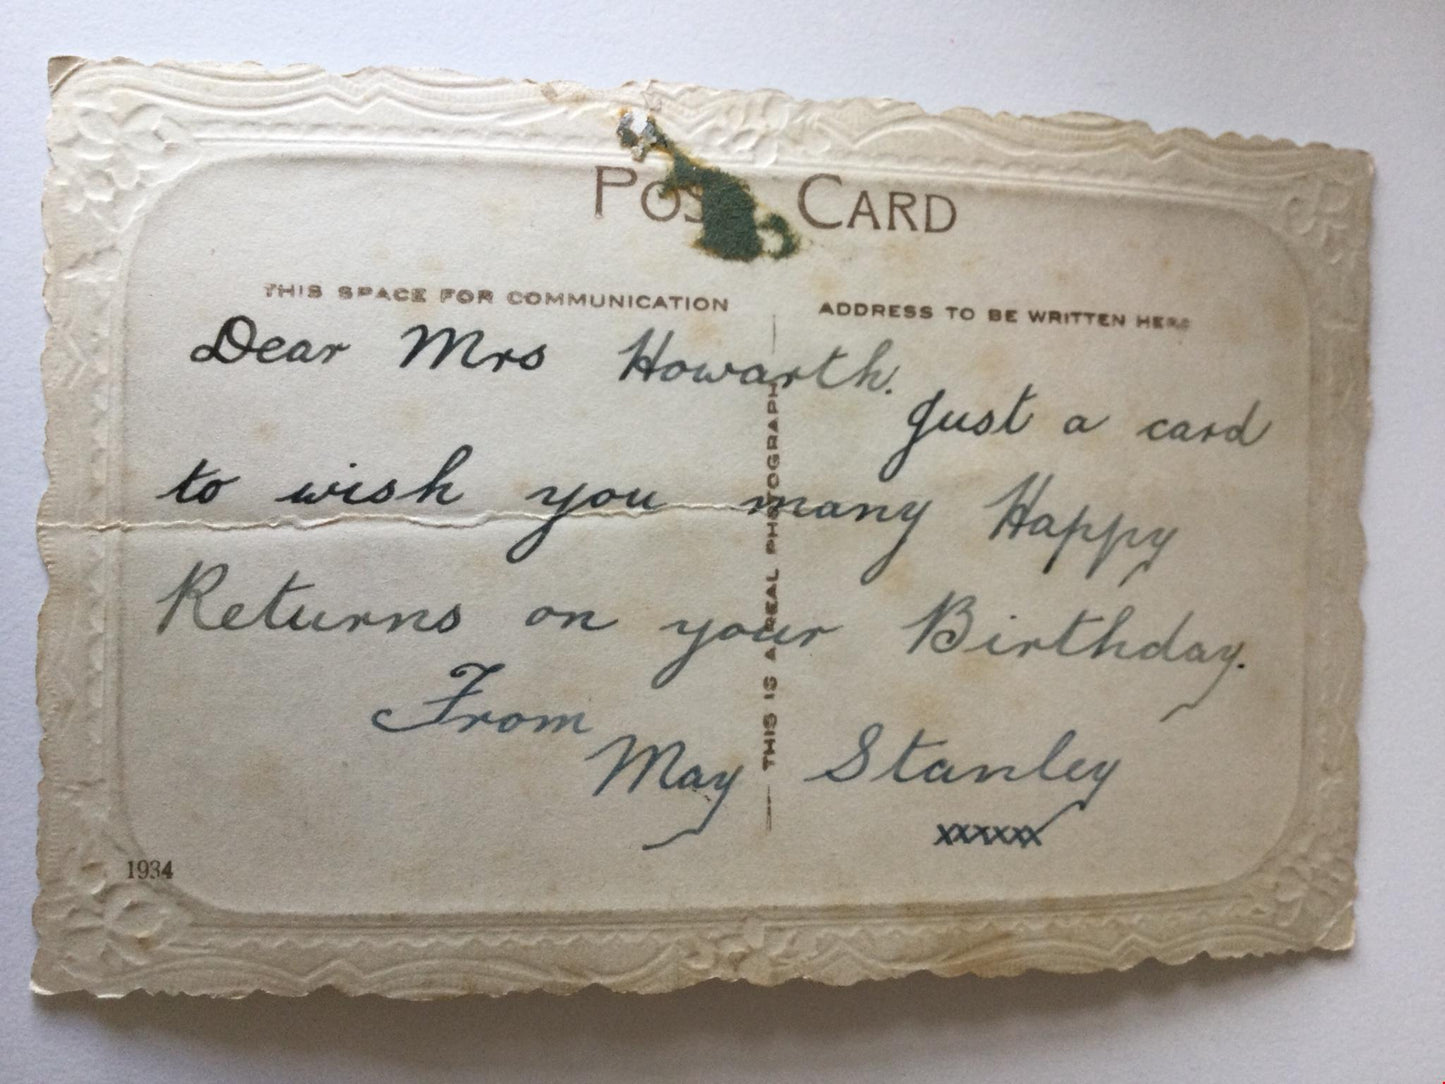 POST CARD
THIS SPACE FOR COMMUNICATION
ADDRESS TO BE WRITTEN HERE
Dear Mrs Howarth.
Just a card
to wish you many Happy
Returns on your Birthday.
From
May Stanley
xxxxxx
THIS IS A REAL PHOTOGRAPH
1934